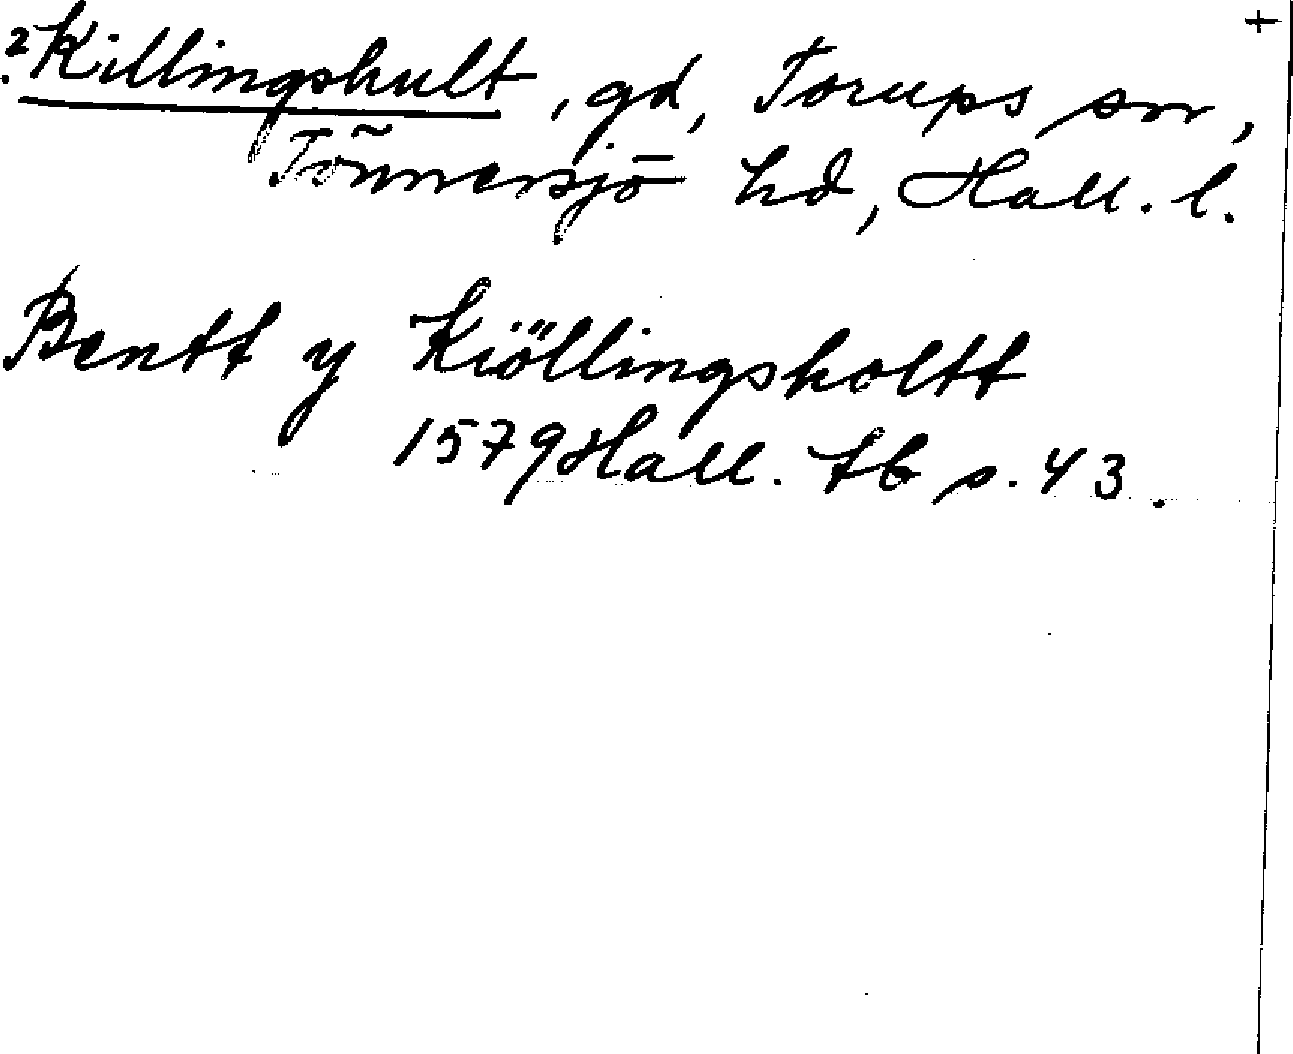 ? Killingshult, gd, Torups sn, +
Tönnersjö hd, Hall. l.
Bentt y Kiöllingsholtt
1579 Hall. tb s. 43.